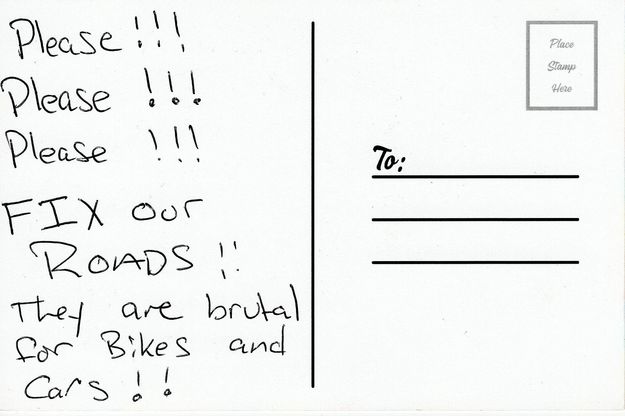 Please !!!
Please !!!
Please !!!
FIX our
ROADS !!
They are brutal
for Bikes and
Cars !!
Place
Stamp
Here
To: